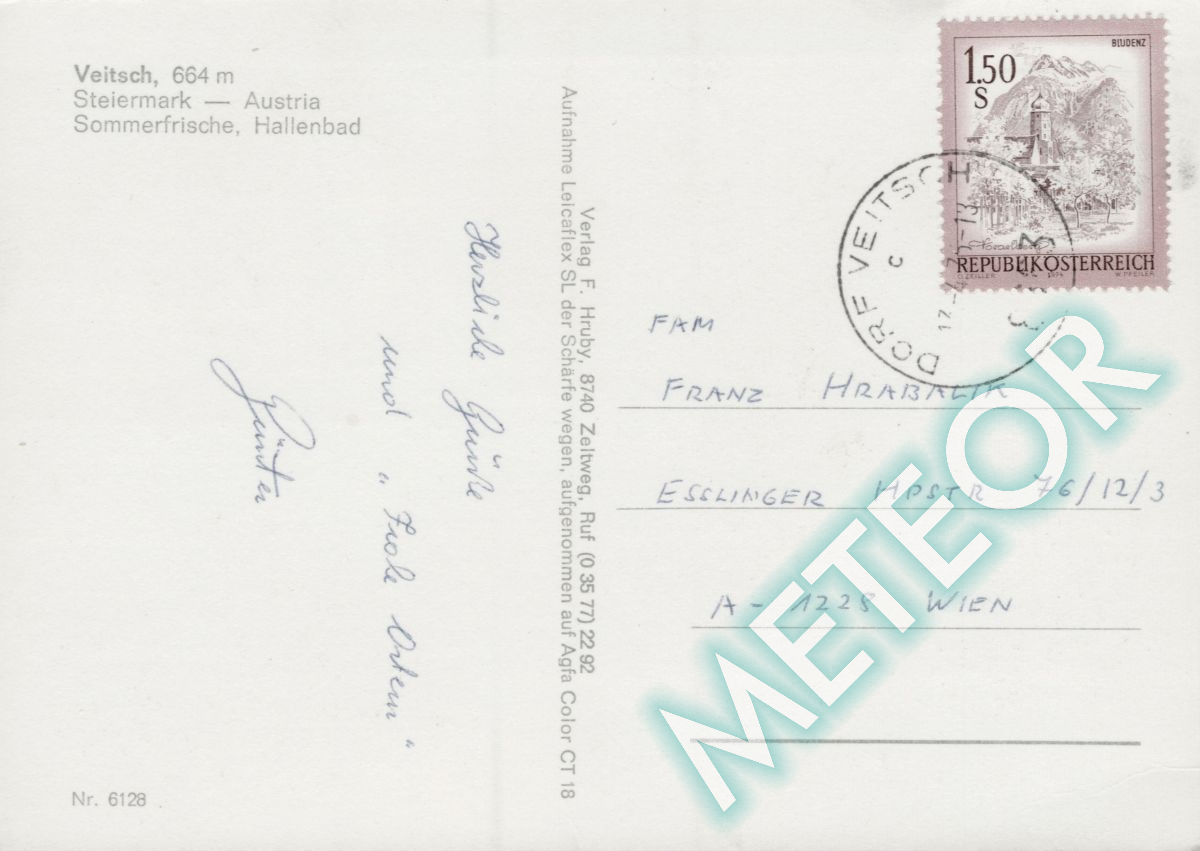 Veitsch, 664 m
Steiermark — Austria
Sommerfrische, Hallenbad
Herzliche Grüße
und „Frohe Ostern“
Günter
Nr. 6128
Verlag F. Hruby, 8740 Zeltweg, Ruf (0 35 77) 22 92
Aufnahme Leicaflex SL der Schärfe wegen, aufgenommen auf Agfa Color CT 18
BLUDENZ
1.50
S
Vorarlberg
REPUBLIK ÖSTERREICH
O. ZEILLER 1974 W. PFEILER
DORF VEITSCH
c
FAM
FRANZ HRABALIK
ESSLINGER HPSTR 76/12/3
A - 1228 WIEN
METEOR